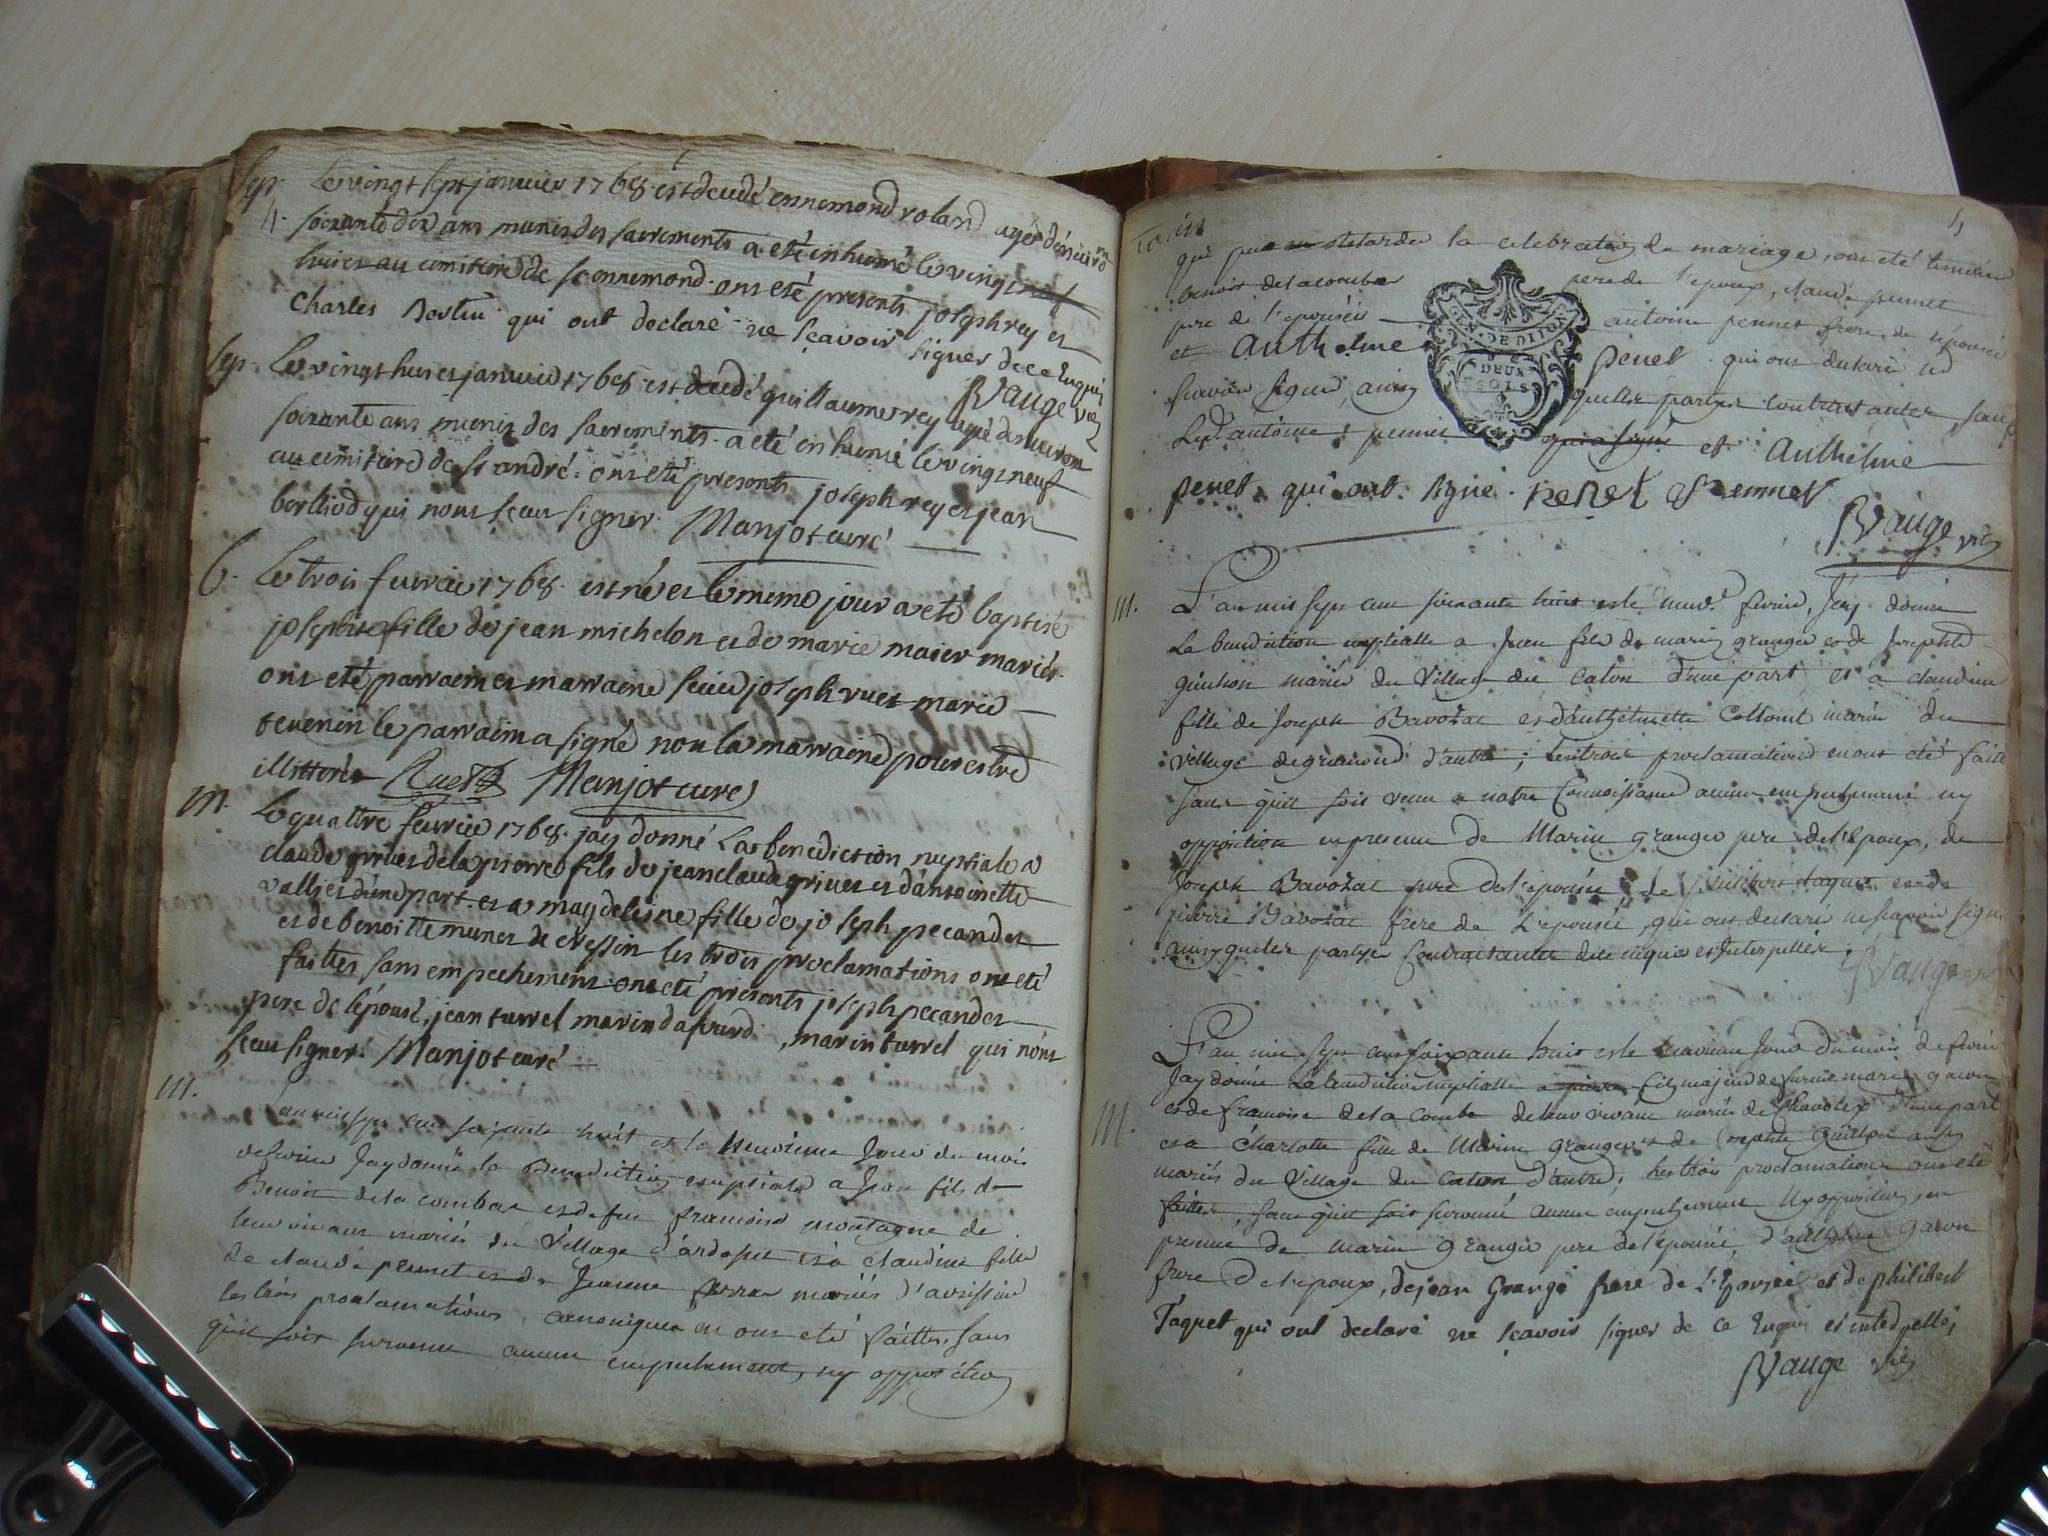 Sep. Le vingt sept janvier 1768 est decedé ennemond roland agé d'environ
4. soixante dix ans munis des sacrements a eté inhumé le vingt
huict au cimitiere de st ennemond. ont eté presents joseph rey et
Charles qui ont declaré ne sçavoir signer de ce Enquis
Vauge vic
Sep. Le vingt huict janvier 1768 est decedé guillaume rey agé d'environ
soixante ans munis des sacrements. a eté inhumé le vingt neuf
au cimitiere de st andré. ont eté presents joseph rey et jean
berthod qui nont sceu signer. Manjot curé
6. Le trois fevrier 1768. est née et le meme jour a eté baptisé
josephte fille de jean michelon et de marie maier mariés.
ont eté parrain et marraine sieur joseph vuet marie
tevenin le parrain a signé non la marraine pour estre
illitterée Vuet Manjot curé
M. Le quattre fevrier 1768. jay donné La benediction nuptiale a
claude grives de la pierre fils de jean claude grives et d'antoinette
vallier d'une part. et a magdeleine fille de joseph pecander
et de benoitte munet de cressin les trois proclamations ont eté
faittes sans empechement ont eté presents joseph pecander
pere de lépouse, jean turrel marin dafrurd, marin turrel qui n'ont
sceu signer. Manjot curé
M. L'an mil sept cent soixante huit et le neuvieme Jour du mois
de fevrier Jay donné la Benediction nuptiale a Jean fils de
Benoit de la combe et de feu francoise montagne de
leur vivant mariés du Village d'ardosset et à claudine fille
de claude pennet et de Jeanne ferran mariés d'
les trois proclamations canoniques en ont eté faittes, sans
qu'il soit survenu aucun empechement, ny opposition
4
qui puisse retarder la celebration de mariage, ont été temoins
benoit delacombe pere de l'epoux, claude pennet
pere de l'epousée antoine pennet frere de l'epousée
et Anthelme penet qui ont declaré ne
scavoir signer, ainsy que les parties contractantes, sauf
Led. antoine pennet qui a signé et Anthelme
penet qui ont signé. Penet A Pennet
Vauge vic
GEN. DE DIJON
DEUX
SOLS
M. L'an mil sept cent soixante huit et le neuv.e fevrier, J'ay donné
La benediction nuptialle a Jean fils de marin granger et de Josephte
guithon mariés du Village du Caton d'une part, et a claudine
fille de Joseph Bavozat et d'anthelmette Collomb mariés du
village de d'autre; les trois proclamations en ont eté faite
sans qu'il soit venu a notre Connoissance aucun empechement ny
opposition en presence de Marin granger pere de l'epoux, de
Joseph Bavozat pere de l'epousée, de philibert taquet et de
pierre Bavozat frere de L'epousée, qui ont declaré ne scavoir signer
ainsy que les parties Contractantes de ce enquis et Interpellés.
Vauge vic
L'an mil sept cent soixante huit et le neuvieme Jour du mois de fevrier
Jay donné La benediction nuptialle a pierre fils majeur de marin gacon
M. et de francoise de la combe de leur vivant mariés de Chavolex d'une part
et a Charlotte fille de Marin Granger et de Josephte Guithon aussy
mariés du Village du Caton d'autre; les trois proclamations ont eté
faittes, sans qu'il soit survenu aucun empechement Ny opposition, en
presence de Marin Granger pere de l'epousée, d'anthelme Gacon
frere de l'epoux, de jean Grangé frere de L'Epousée et de philibert
Taquet qui ont declaré ne sçavoir signer de ce Enquis et interpellés
Vauge vic